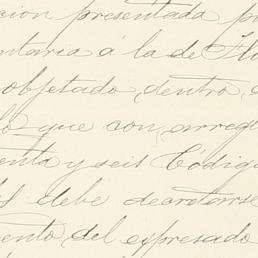 cion presentada po
ntaria á la de Flo
objetado dentro, e
lo que con arregl
enta y seis Códig
debe decretarse
ento del espresado